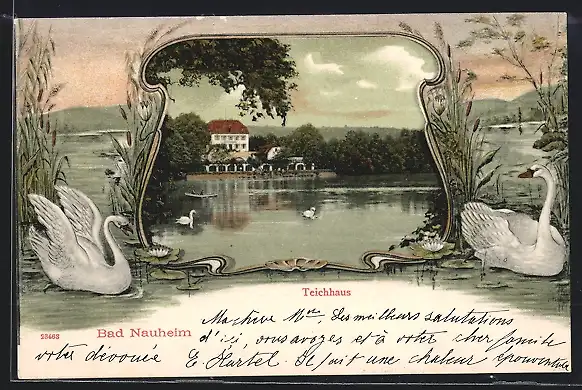 Teichhaus
23463
Bad Nauheim
Ma chère Mlle. Les meilleurs salutations
d'ici, vous avozes et à votre cher famille
votre dévouée E Hartel. Il fait une chaleur épouventée